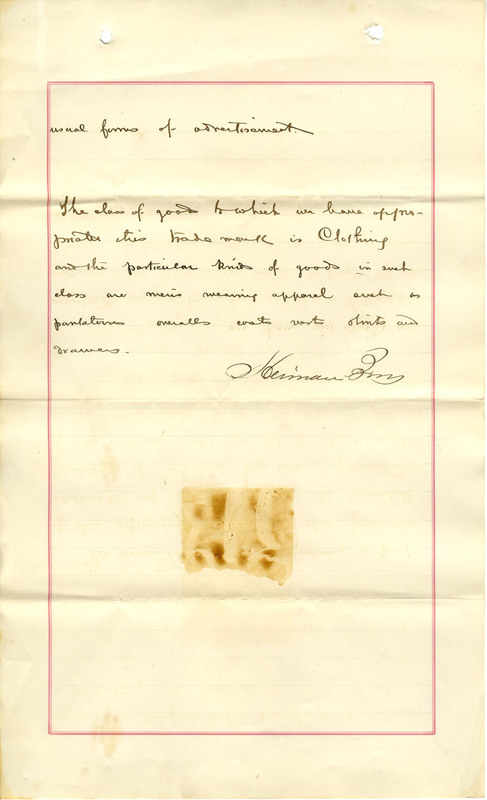 usual forms of advertisement.
The class of goods to which we have appro-
priated this trade mark is Clothing
and the particular kinds of goods in such
class are mens wearing apparel such as
pantaloons overalls coats vests shirts and
drawers.
Heiman Bros